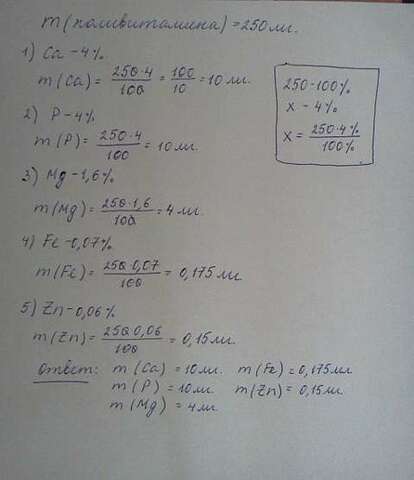 m (поливитамина) = 250 мг.
1) Ca - 4%
m (Ca) = 250·4 / 100 = 100 / 10 = 10 мг.
2) P - 4%
m (P) = 250·4 / 100 = 10 мг.
3) Mg - 1,6%
m (Mg) = 250·1,6 / 100 = 4 мг.
4) Fe - 0,07%
m (Fe) = 250·0,07 / 100 = 0,175 мг.
5) Zn - 0,06%
m (Zn) = 250·0,06 / 100 = 0,15 мг.
Ответ: m (Ca) = 10 мг. m (Fe) = 0,175 мг.
m (P) = 10 мг. m (Zn) = 0,15 мг.
m (Mg) = 4 мг.
250 - 100%
x - 4%
x = 250·4% / 100%